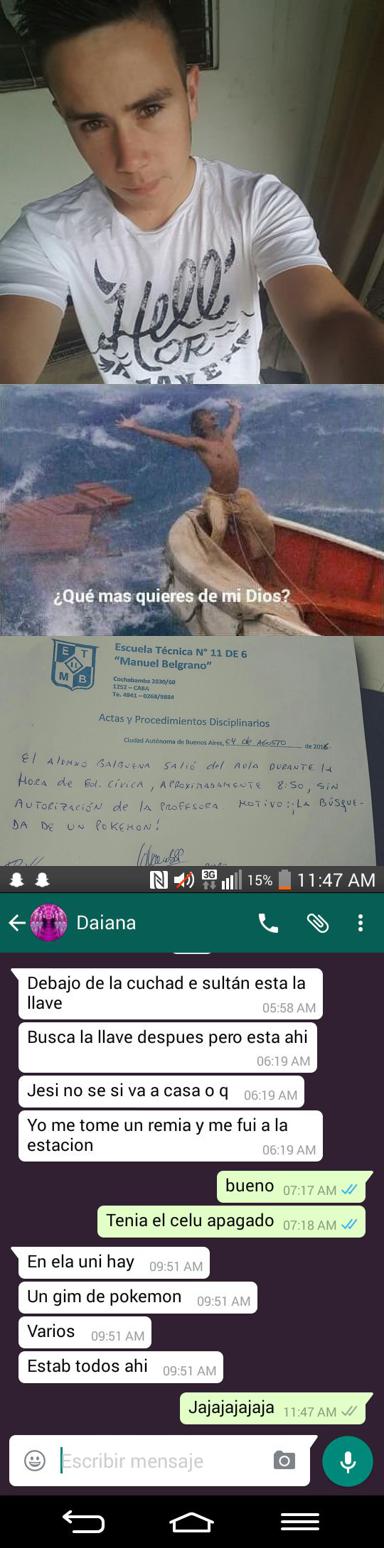 Hell
OR
¿Qué mas quieres de mi Dios?
E T
11
M B
Escuela Técnica N° 11 DE 6
"Manuel Belgrano"
Cochabamba 2830/60
1252 - CABA
Te. 4941 - 0268/9884
Actas y Procedimientos Disciplinarios
Ciudad Autónoma de Buenos Aires, 04 de AGOSTO de 2016
El Alumno BALBUENA SALIÓ del AULA DURANTE la
HORA de Ed. CÍVICA, APROXIMADAMENTE 8:50, SIN
AUTORIZACIÓN de la PROFESORA MOTIVO: ¡LA BÚSQUE-
DA DE UN POKEMON!
3G 15% 11:47 AM
Daiana
Debajo de la cuchad e sultán esta la
llave 05:58 AM
Busca la llave despues pero esta ahi
06:19 AM
Jesi no se si va a casa o q 06:19 AM
Yo me tome un remia y me fui a la
estacion 06:19 AM
bueno 07:17 AM
Tenia el celu apagado 07:18 AM
En ela uni hay 09:51 AM
Un gim de pokemon 09:51 AM
Varios 09:51 AM
Estab todos ahi 09:51 AM
Jajajajajaja 11:47 AM
Escribir mensaje